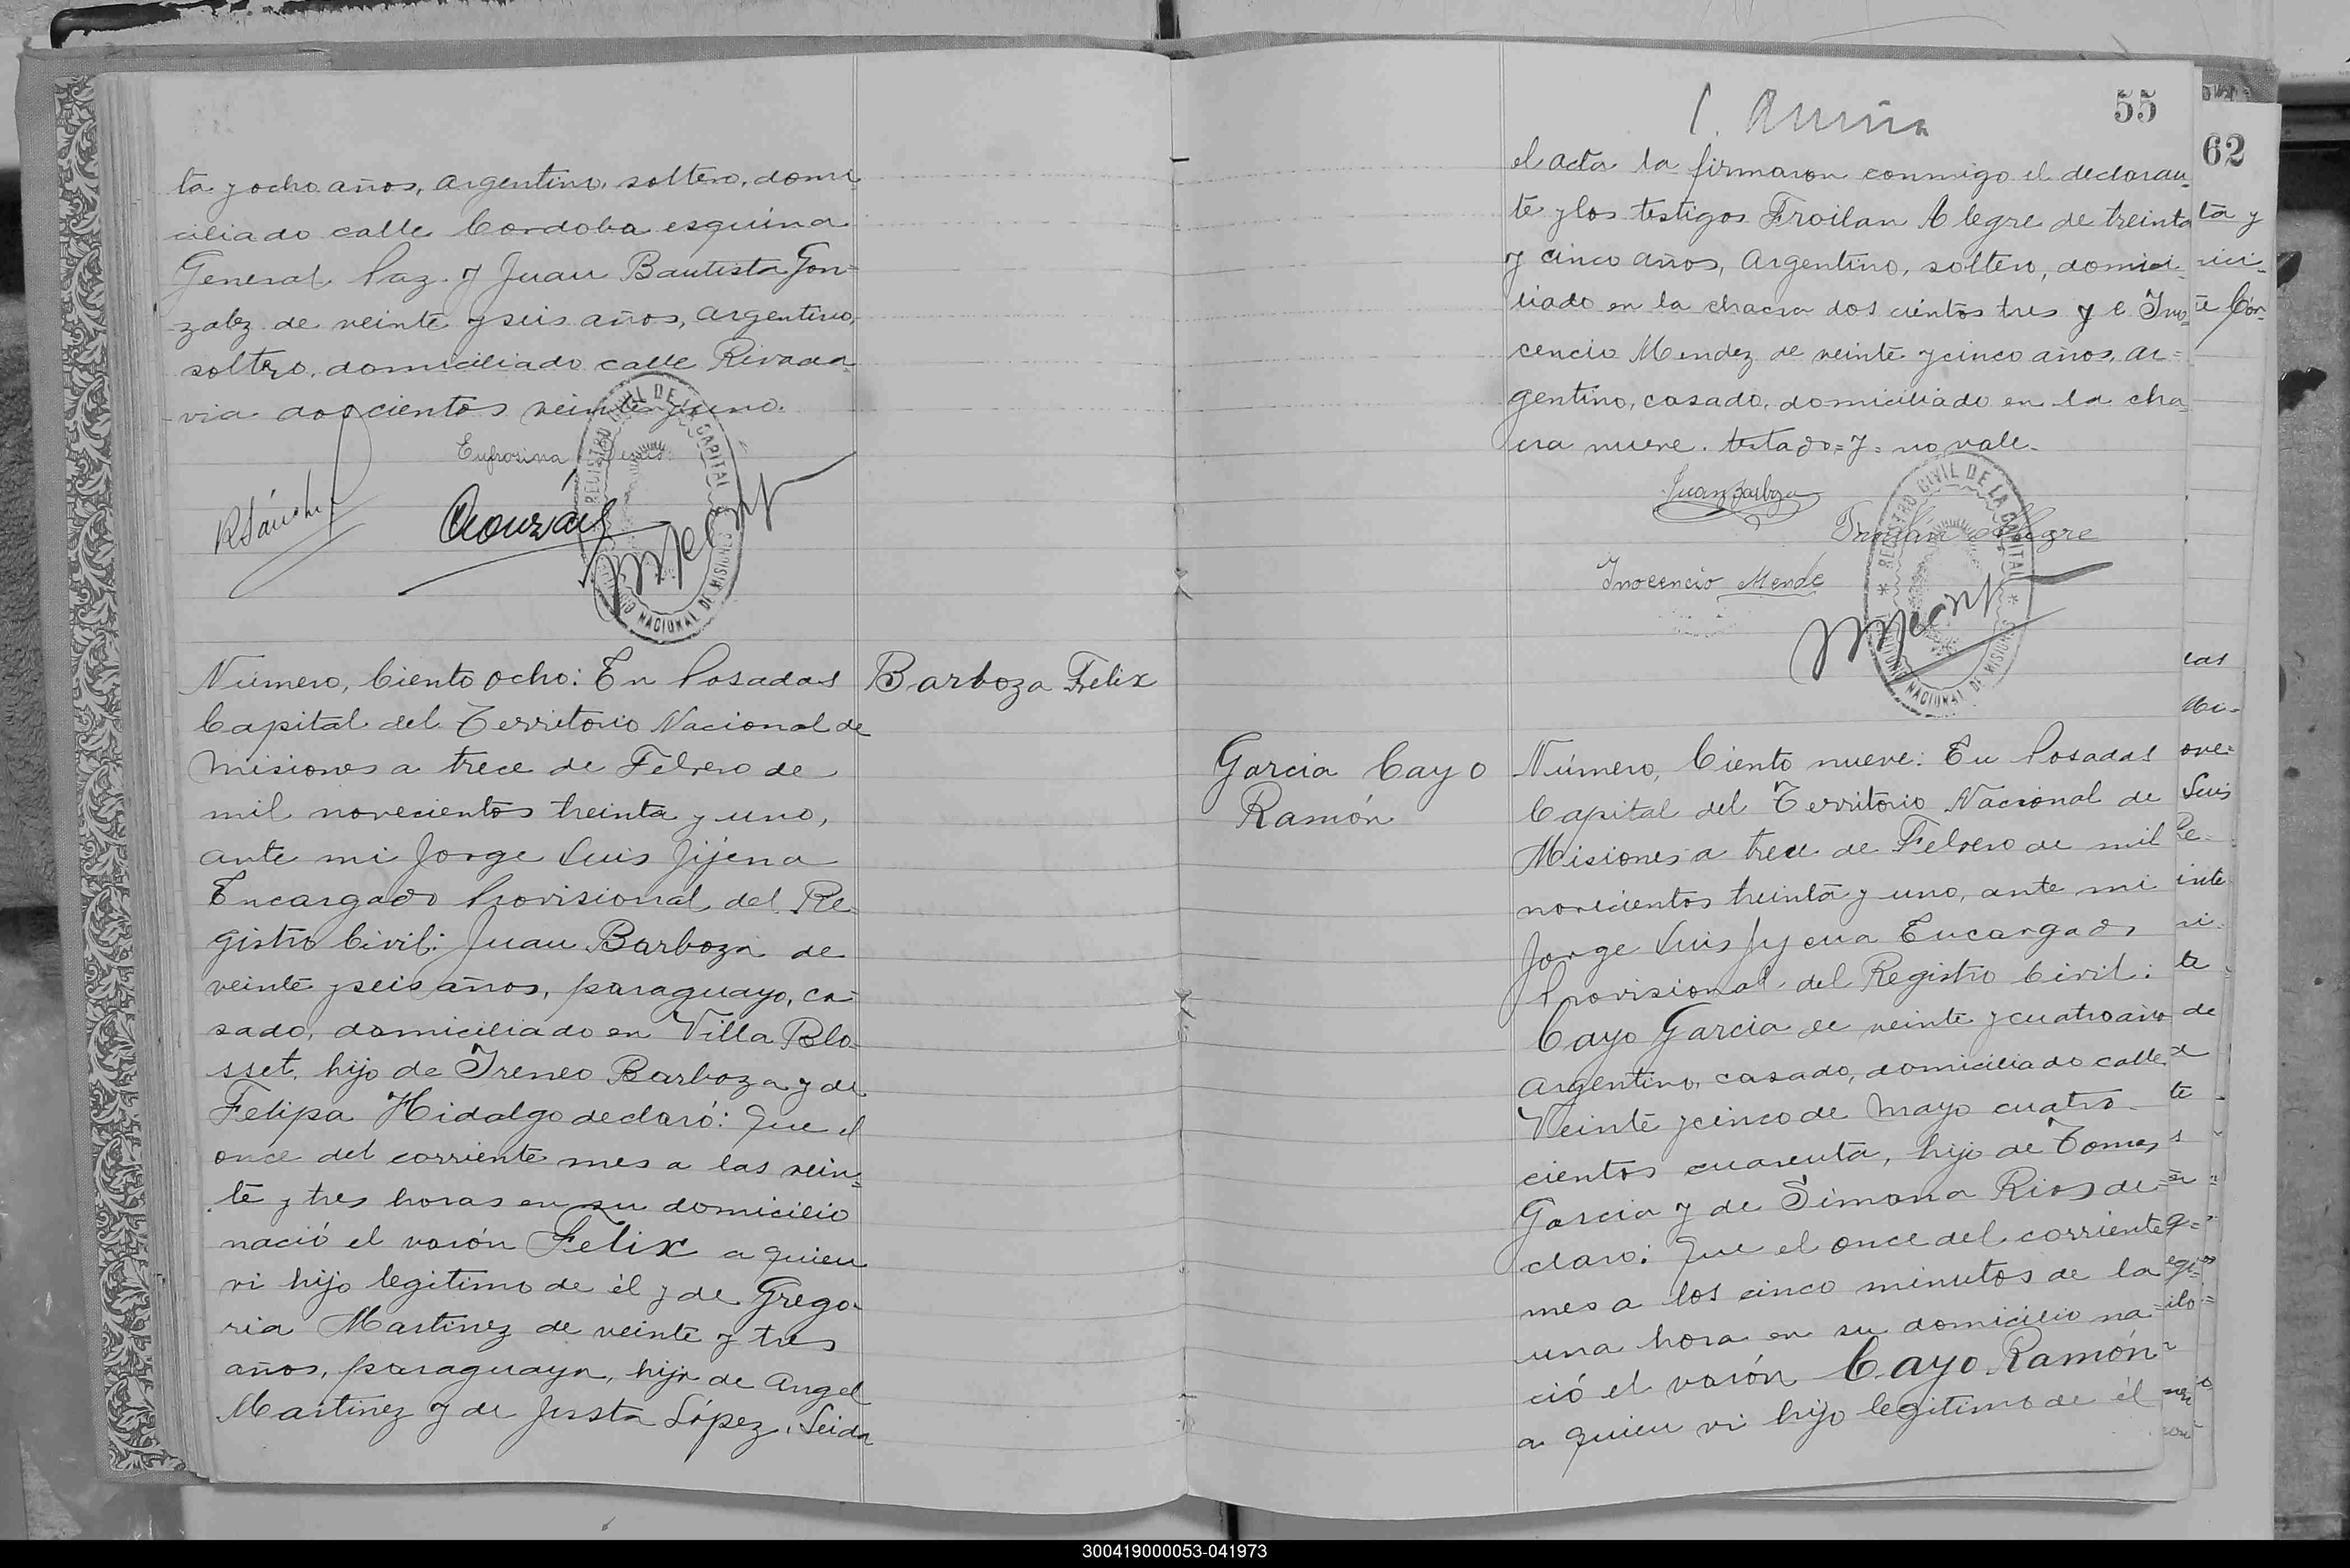 ta y ocho años, argentino, soltero, domi
ciliado calle Cordoba esquina
General Paz y Juan Bautista Gon=
zalez de veinte y seis años, argentino,
soltero, domiciliado calle Rivada=
via doscientos veinte y uno.
Eufrosina
RSánchez
REGISTRO CIVIL DE LA CAPITAL
TERRITORIO NACIONAL DE MISIONES
Número, Ciento ocho: En Posadas
Capital del Territorio Nacional de
Misiones a trece de Febrero de
mil novecientos treinta y uno,
ante mi Jorge Luis Jijena
Encargado Provisional del Re=
gistro Civil: Juan Barboza de
veinte y seis años, paraguayo, ca=
sado, domiciliado en Villa Blo=
sset, hijo de Ireneo Barboza y de
Felipa Hidalgo declaró: Que el
once del corriente mes a las vein=
te y tres horas en su domicilio
nació el varón Felix a quien
vi hijo legitimo de él y de Grego=
ria Martinez de veinte y tres
años, paraguaya, hija de Angel
Martinez y de Justa López. Leida
Barboza Felix
55
el acta la firmaron conmigo el declaran=
te y los testigos Froilan Alegre de treinta
y cinco años, argentino, soltero, domici=
liado en la chacra dos cientos tres y e Ino=
cencio Mendez de veinte y cinco años, ar=
gentino, casado, domiciliado en la cha=
cra nueve. testado=y=no vale.
Juan Barboza
Froilan Alegre
Inocencio Mende
REGISTRO CIVIL DE LA CAPITAL
TERRITORIO NACIONAL DE MISIONES
Garcia Cayo
Ramón
Número, Ciento nueve: En Posadas
Capital del Territorio Nacional de
Misiones a trece de Febrero de mil
novecientos treinta y uno, ante mi
Jorge Luis Jijena Encargado
Provisional del Registro Civil:
Cayo Garcia de veinte y cuatro años
argentino, casado, domiciliado calle
Veinte y cinco de Mayo cuatro=
cientos cuarenta, hijo de Tomas
Garcia y de Simona Rios de=
claro: Que el once del corriente
mes a los cinco minutos de la
una hora en su domicilio na=
ció el varón Cayo Ramón
a quien vi hijo legitimo de él
62
ta y
Luis
300419000053-041973